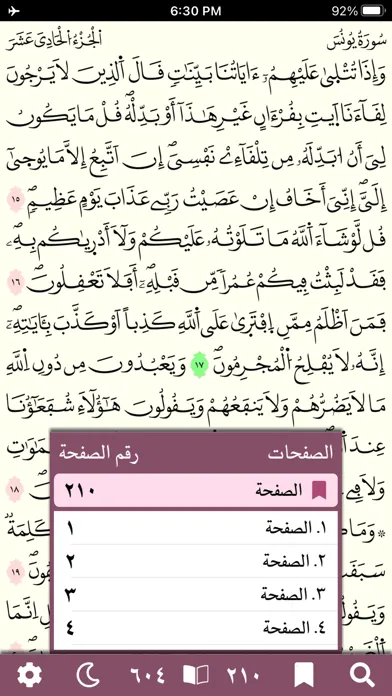 6:30 PM
92%
سُورَةُ يُونُسَ
اَلْجُزْءُ الْحَادِي عَشَرَ
وَإِذَا تُتْلَىٰ عَلَيْهِمُۥٓ ءَايَاتُنَا بَيِّنَٰتٖ قَالَ اَلذِينَ لَا يَرْجُونَ
لِقَآءَنَا اَيتِ بِقُرْءَانٍ غَيْرِ هَٰذَآ أَوْ بَدِّلْهُۖ قُلْ مَا يَكُونُ
لِيَ أَنُ ابَدِّلَهُۥ مِن تِلْقَآءِےْ نَفْسِيَۖ إِنَ اَتَّبِعُ إِلَّا مَا يُوحَىٰٓ
إِلَيَّۖ إِنِّيَ أَخَافُ إِنْ عَصَيْتُ رَبِّے عَذَابَ يَوْمٍ عَظِيمٖۖ ١٥
قُل لَّوْ شَآءَ اَللَّهُ مَا تَلَوْتُهُۥ عَلَيْكُمْ وَلَآ أَدْر۪يٰكُم بِهِۦۖ
فَقَدْ لَبِثْتُ فِيكُمْ عُمُراٗ مِّن قَبْلِهِۦٓۖ أَفَلَا تَعْقِلُونَۖ ١٦
فَمَنَ اَظْلَمُ مِمَّنِ اِفْتَر۪يٰ عَلَى اَللَّهِ كَذِباً اَوْ كَذَّبَ بِـَٔايَٰتِهِۦٓۖ
إِنَّهُۥ لَا يُفْلِحُ اُ۬لْمُجْرِمُونَۖ ١٧ وَيَعْبُدُونَ مِن دُونِ اِللَّهِ
مَا لَا يَضُرُّهُمْ وَلَا يَنفَعُهُمْ وَيَقُولُونَ هَٰٓؤُلَآءِ شُفَعَٰٓؤُنَا
عِندَ
وَلَا فِے
١٨
سَبَقَتْ
١٩
وَيَقُولُونَ
إِنَّمَا
الصفحات رقم الصفحة
الصفحة ٢١٠
١. الصفحة ١
٢. الصفحة ٢
٣. الصفحة ٣
٤. الصفحة ٤
٢١٠ ٦٠٤